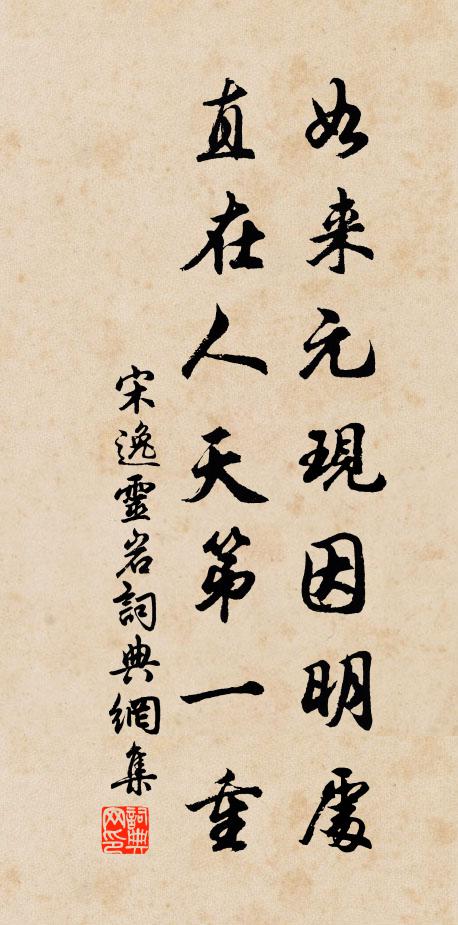 如来元現因明處
直在人天第一重
宋逸靈岩詞典網集
詞典网印